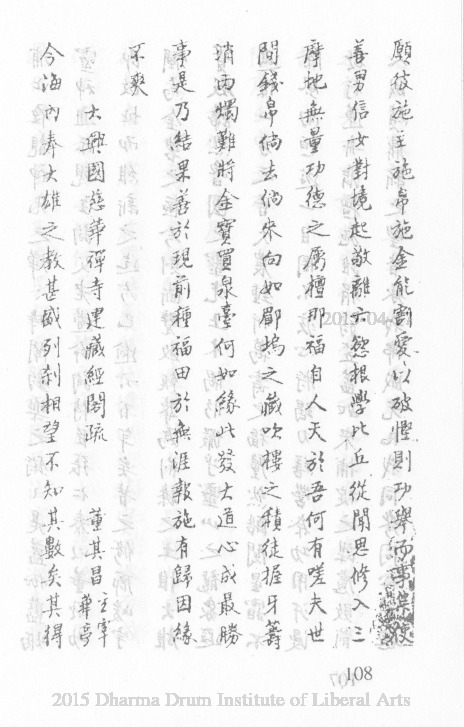 願彼施主施帛施金能割愛以破慳則功舉而事集使
善男信女對境起敬離六慾根學比丘從聞思修入三
摩地無量功德之屬檀那福自人天於吾何有嗟夫世
間錢帛倘去倘來何如郿塢之藏吹樓之積徒握牙籌
消雨燭難將金寶買泉臺何如緣此發大道心成最勝
事是乃結果善於現前種福田於無涯報施有歸因緣
不爽
大興國慈華禪寺建藏經閣疏
董其昌 華亭
今海內奉大雄之教甚盛列剎相望不知其數矣其得
108
2015 Dharma Drum Institute of Liberal Arts